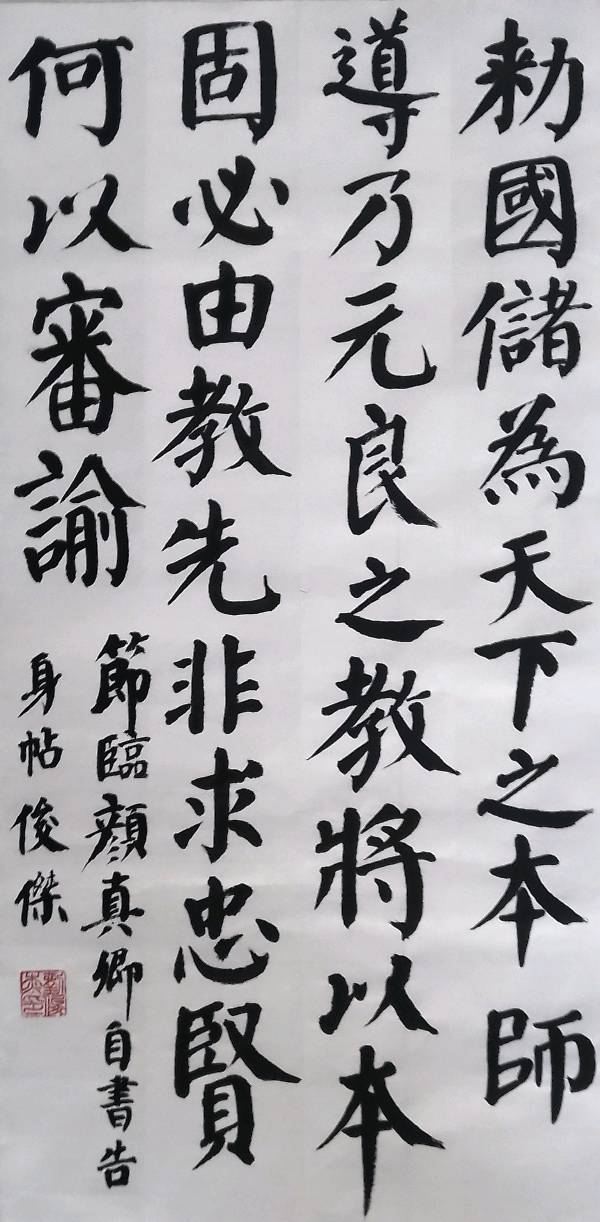 勑國儲為天下之本師
導乃元良之教將以本
固必由教先非求忠賢
何以審諭
節臨顏真卿自書告
身帖俊傑